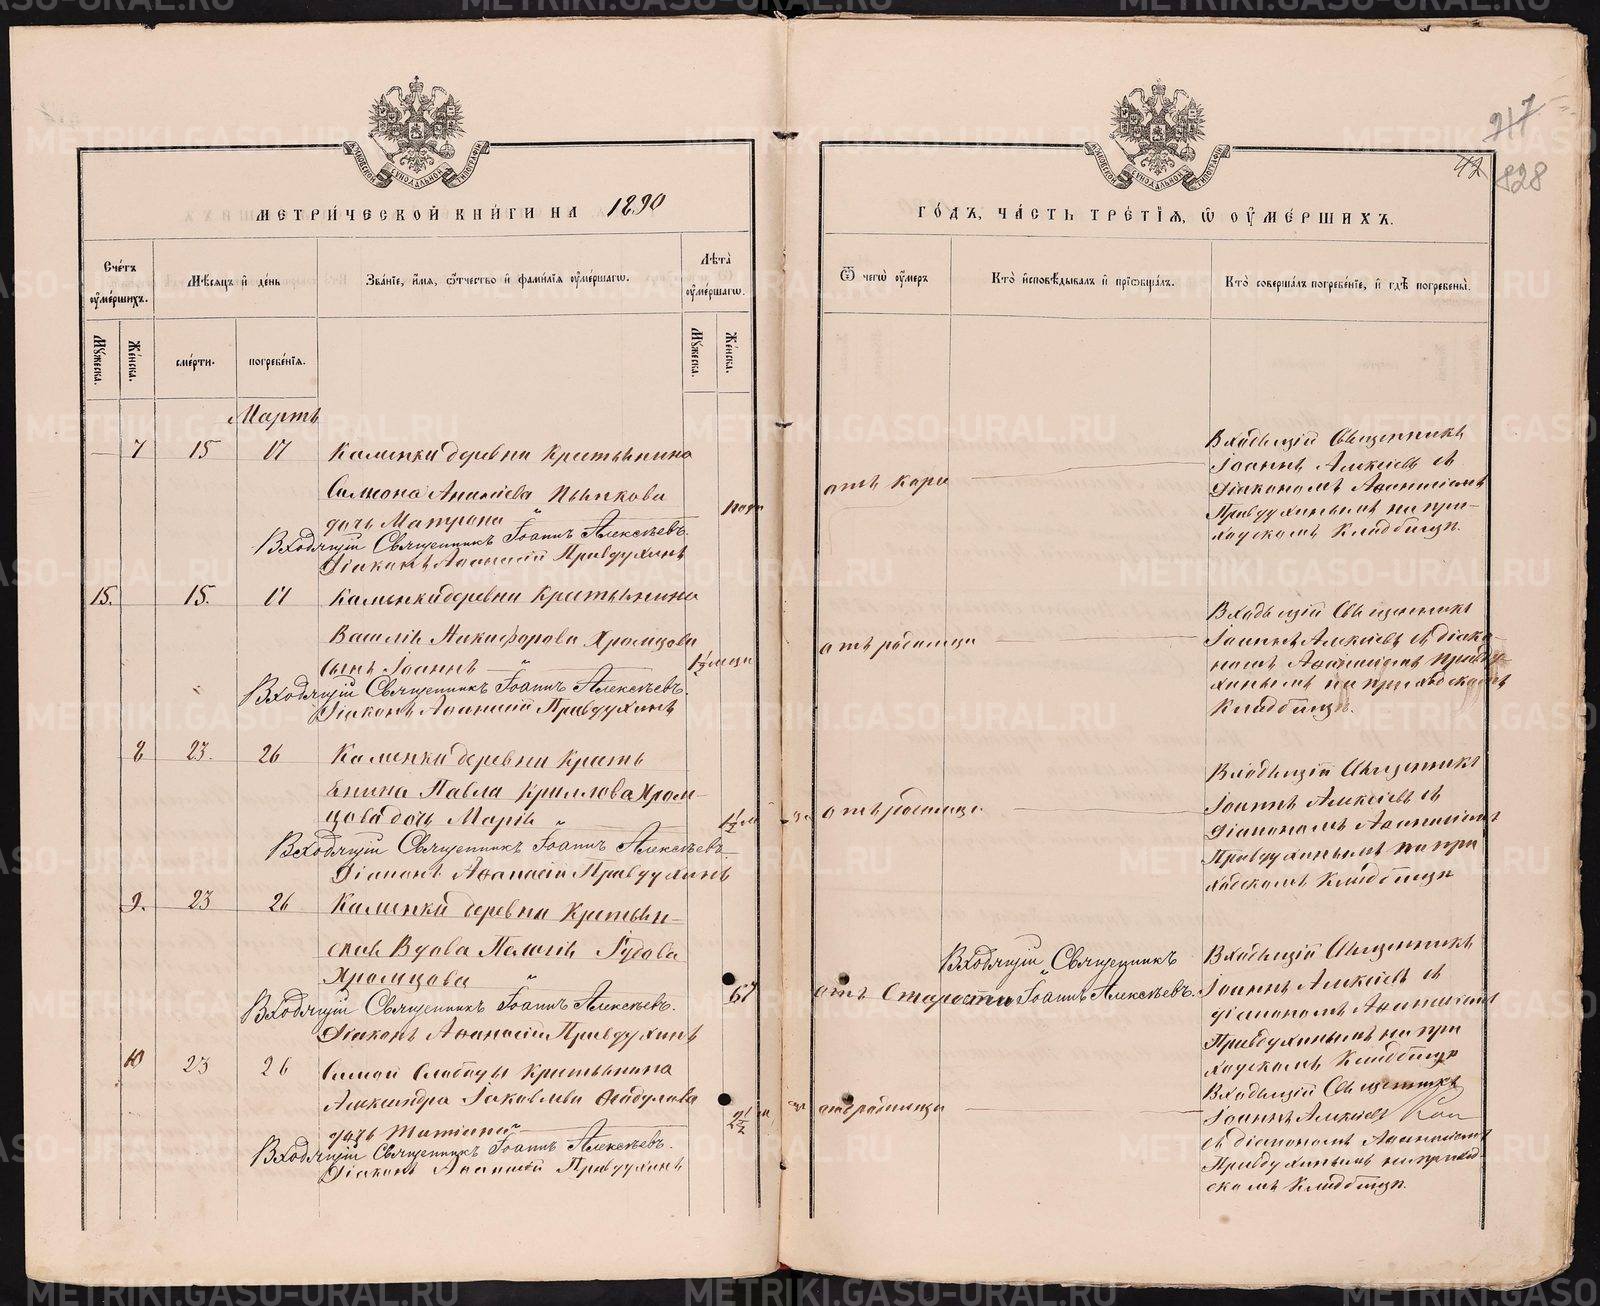 717
42
828
МЕТРИ́ЧЕСКОЙ КНИ́ГИ НА 1890
ГО́ДЪ, ЧА́СТЬ ТРЕ́ТІѦ, Ѿ ОУ҆МЕ́РШИХЪ.
Сче́тъ оу҆ме́ршихъ.
Мѣ́сяцъ и҆ де́нь
Зва́нїе, и҆́мя, ѻ҆́тчество и҆ фами́лїя оу҆ме́ршагѡ.
Лѣ́та оу҆ме́ршагѡ.
Ѿ чегѡ̀ оу҆́меръ
Кто̀ и҆сповѣ́дывалъ и҆ прїѡбща́лъ.
Кто̀ соверша́лъ погребе́нїе, и҆ гдѣ̀ погребены̀.
Мꙋ́жеска.
Же́нска.
сме́рти.
погребе́нїя.
Мꙋ́жеска.
Же́нска.
Мартъ
7 15 17 Каменки деревни Крестьянина
Симеона Пьянкова
дочь Матрона
Входящій Священникъ Іоаннъ Алексѣевъ.
Діаконъ Аѳанасій Правдухинъ
года
отъ кори
Входящій Священникъ
Іоаннъ Алексіевъ съ
Діакономъ Аѳанасіемъ
Правдухинымъ на при-
ходскомъ Кладбищѣ.
15. 15. 17 Каменки деревни Крестьянина
Василія Никифорова Хромцова
сынъ Іоаннъ
Входящій Священникъ Іоаннъ Алексѣевъ.
Діаконъ Аѳанасій Правдухинъ
1½ мѣсяц
отъ родимца
Входящій Священникъ
Іоаннъ Алексіевъ съ діако-
номъ Аѳанасіемъ Правду-
хинымъ на приходскомъ
Кладбищѣ.
8 23. 26 Каменки деревни Кресть
янина Павла Кирилова Хром-
цова дочь Марія
Входящій Священникъ Іоаннъ Алексѣевъ
Діаконъ Аѳанасій Правдухинъ
1½ м
отъ родимца
Входящій Священникъ
Іоаннъ Алексіевъ съ
Діакономъ Аѳанасіемъ
Правдухинымъ на при
ходскомъ Кладбищѣ
9. 23 26 Каменки деревни Крестьян-
ская Вдова Пелагія
Хромцова
Входящій Священникъ Іоаннъ Алексѣевъ.
Діаконъ Аѳанасій Правдухинъ
67
отъ Старости
Входящій Священникъ
Іоаннъ Алексѣевъ.
Входящій Священникъ
Іоаннъ Алексіевъ съ
діакономъ Аѳанасіемъ
Правдухинымъ на при
ходскомъ Кладбищѣ
10 23 26 Самой Слободы Крестьянина
Александра Іаковлева
дочь Татіана
Входящій Священникъ Іоаннъ Алексѣевъ.
Діаконъ Аѳанасій Правдухинъ
2½ м
отъ родимца
Входящій Священникъ
Іоаннъ Алексіевъ
съ діакономъ Аѳанасіемъ
Правдухинымъ на приход-
скомъ Кладбищѣ.
METRIKI.GASO-URAL.RU